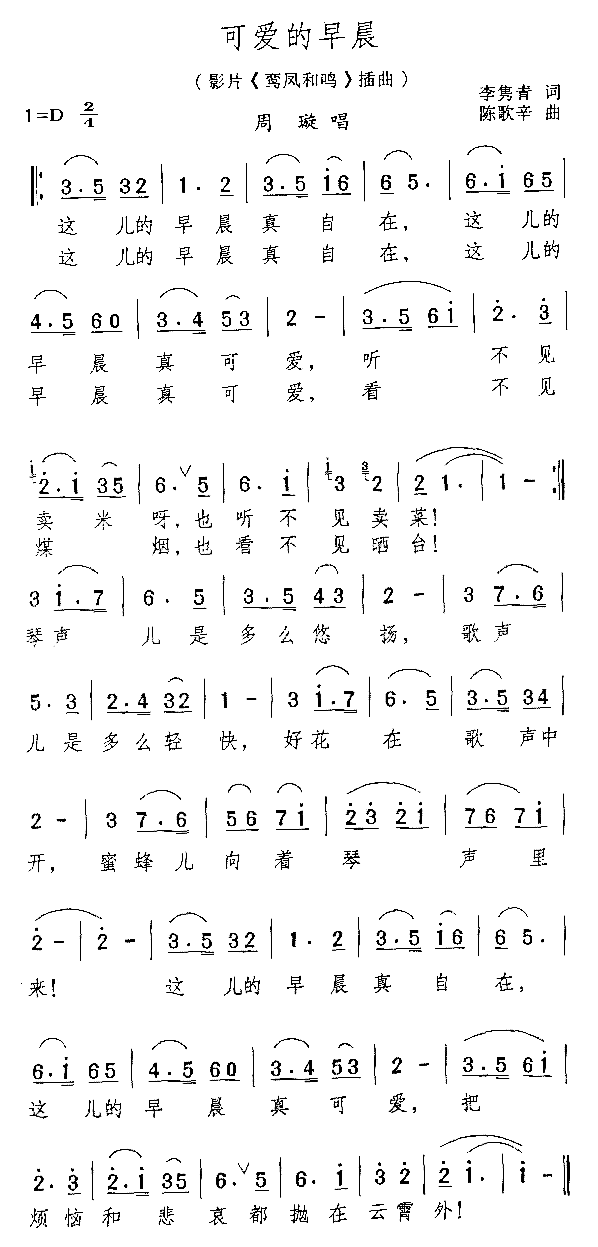 可爱的早晨
（影片《鸾凤和鸣》插曲）
李隽青 词
1=D 2/4 周 璇唱 陈歌辛 曲
3·5 32 | 1·2 | 3·5 i6 | 6 5· | 6·i 65 |
这 儿的 早 晨 真 自 在， 这 儿的
这 儿的 早 晨 真 自 在， 这 儿的
4·5 60 | 3·4 53 | 2 - | 3·5 6i | 2·3 |
早 晨 真 可 爱，听 不见
早 晨 真 可 爱，看 不见
2·i 35 | 6·∨5 | 6·i | 3 2 | 2 1· | 1 - :||
卖 米 呀，也 听 不 见 卖 菜！
煤 烟，也 看 不 见 晒 台！
3 i·7 | 6·5 | 3·5 43 | 2 - | 3 7·6 |
琴声 儿 是 多 么 悠 扬， 歌 声
5·3 | 2·4 32 | 1 - | 3 i·7 | 6·5 | 3·5 34 |
儿 是 多 么 轻 快，好 花 在 歌 声中
2 - | 3 7·6 | 56 7i | 23 2i | 76 7i |
开， 蜜 蜂 儿 向 着 琴 声 里
2 - | 2 - | 3·5 32 | 1·2 | 3·5 i6 | 6 5· |
来！ 这 儿的 早 晨 真 自 在，
6·i 65 | 4·5 60 | 3·4 53 | 2 - | 3·5 6i |
这 儿的 早 晨 真 可 爱， 把
2·3 | 2·i 35 | 6·∨5 | 6·i | 3 2 | 2 i· | i - ||
烦 恼 和 悲 哀 都 抛 在 云 霄 外！